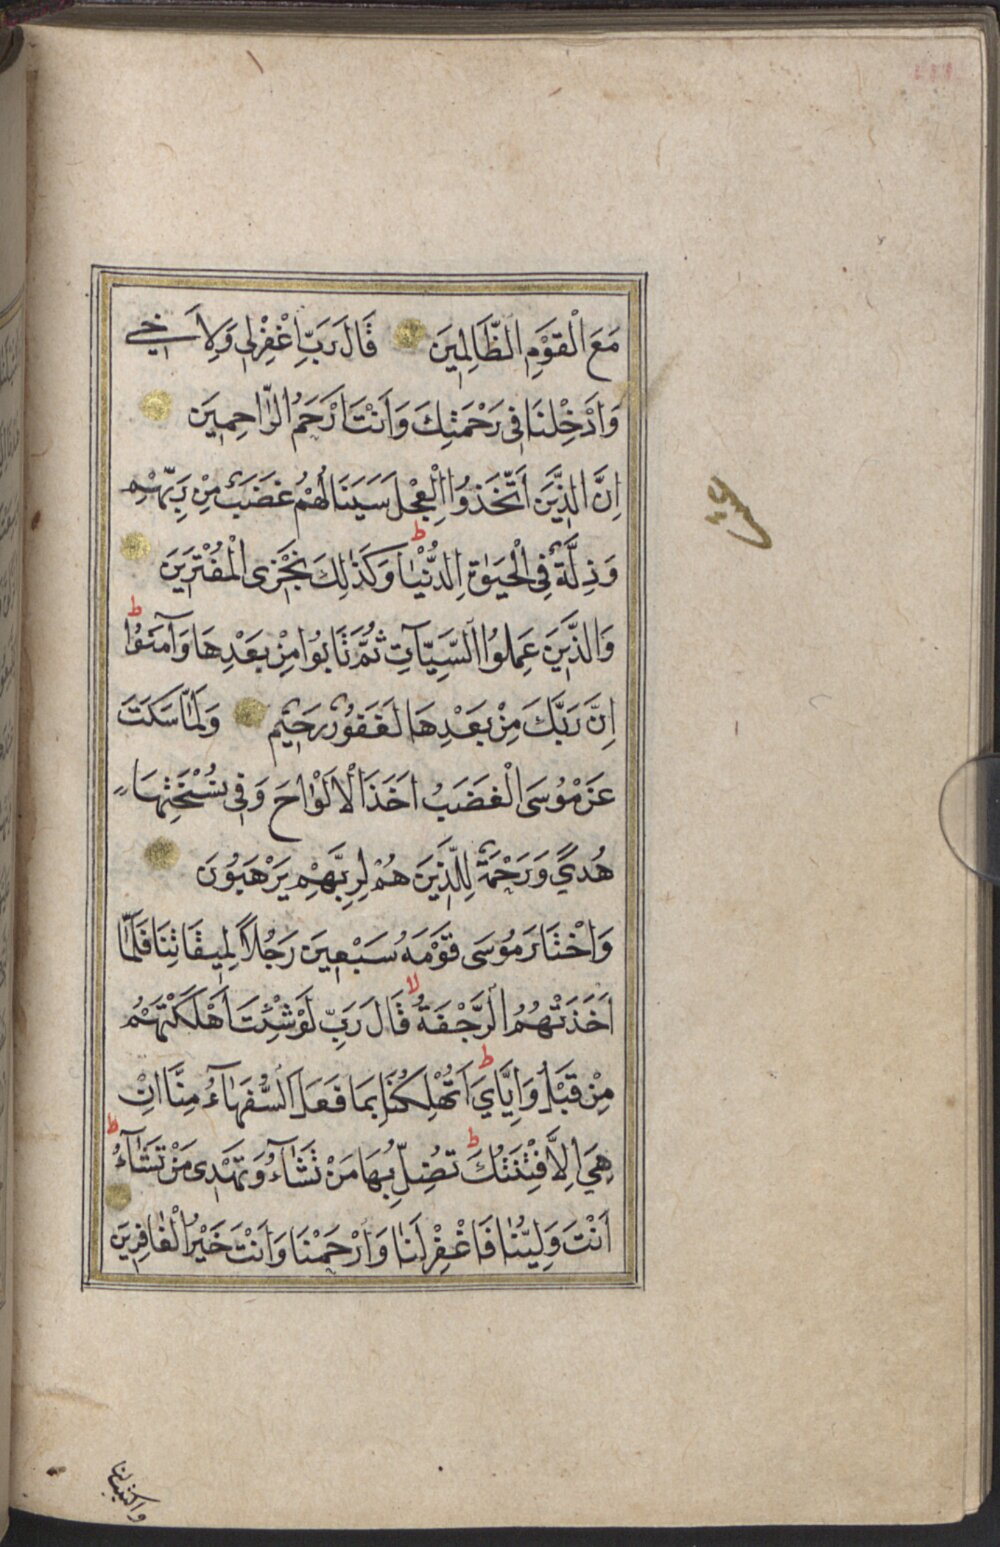 مَعَ الْقَوْمِ الظَّالِمِينَ قَالَ رَبِّ اغْفِرْلِى وَلِاَخِى
وَاَدْخِلْنَا فِى رَحْمَتِكَ وَاَنْتَ اَرْحَمُ الرَّاحِمِينَ
اِنَّ الَّذِينَ اتَّخَذُوا الْعِجْلَ سَيَنَالُهُمْ غَضَبٌ مِنْ رَبِّهِمْ
وَذِلَّةٌ فِى الْحَيٰوةِ الدُّنْيَا وَكَذٰلِكَ نَجْزِى الْمُفْتَرِينَ
ط
وَالَّذِينَ عَمِلُوا السَّيِّاٰتِ ثُمَّ تَابُوا مِنْ بَعْدِهَا وَآمَنُوا
ط
اِنَّ رَبَّكَ مِنْ بَعْدِهَا لَغَفُورٌ رَحِيمٌ وَلَمَّا سَكَتَ
عَنْ مُوسَى الْغَضَبُ اَخَذَ الْاَلْوَاحَ وَفِى نُسْخَتِهَا
هُدًى وَرَحْمَةٌ لِلَّذِينَ هُمْ لِرَبِّهِمْ يَرْهَبُونَ
وَاخْتَارَ مُوسَى قَوْمَهُ سَبْعِينَ رَجُلًا لِمِيقَاتِنَا فَلَمَّا
اَخَذَتْهُمُ الرَّجْفَةُ قَالَ رَبِّ لَوْ شِئْتَ اَهْلَكْتَهُمْ
لا
مِنْ قَبْلُ وَاِيَّايَ اَتُهْلِكُنَا بِمَا فَعَلَ السُّفَهَاۤءُ مِنَّا اِنْ
ط
هِيَ اِلَّا فِتْنَتُكَ تُضِلُّ بِهَا مَنْ تَشَاۤءُ وَتَهْدِى مَنْ تَشَاۤءُ
ط
ط
اَنْتَ وَلِيُّنَا فَاغْفِرْ لَنَا وَارْحَمْنَا وَاَنْتَ خَيْرُ الْغَافِرِينَ
واكتب لنا